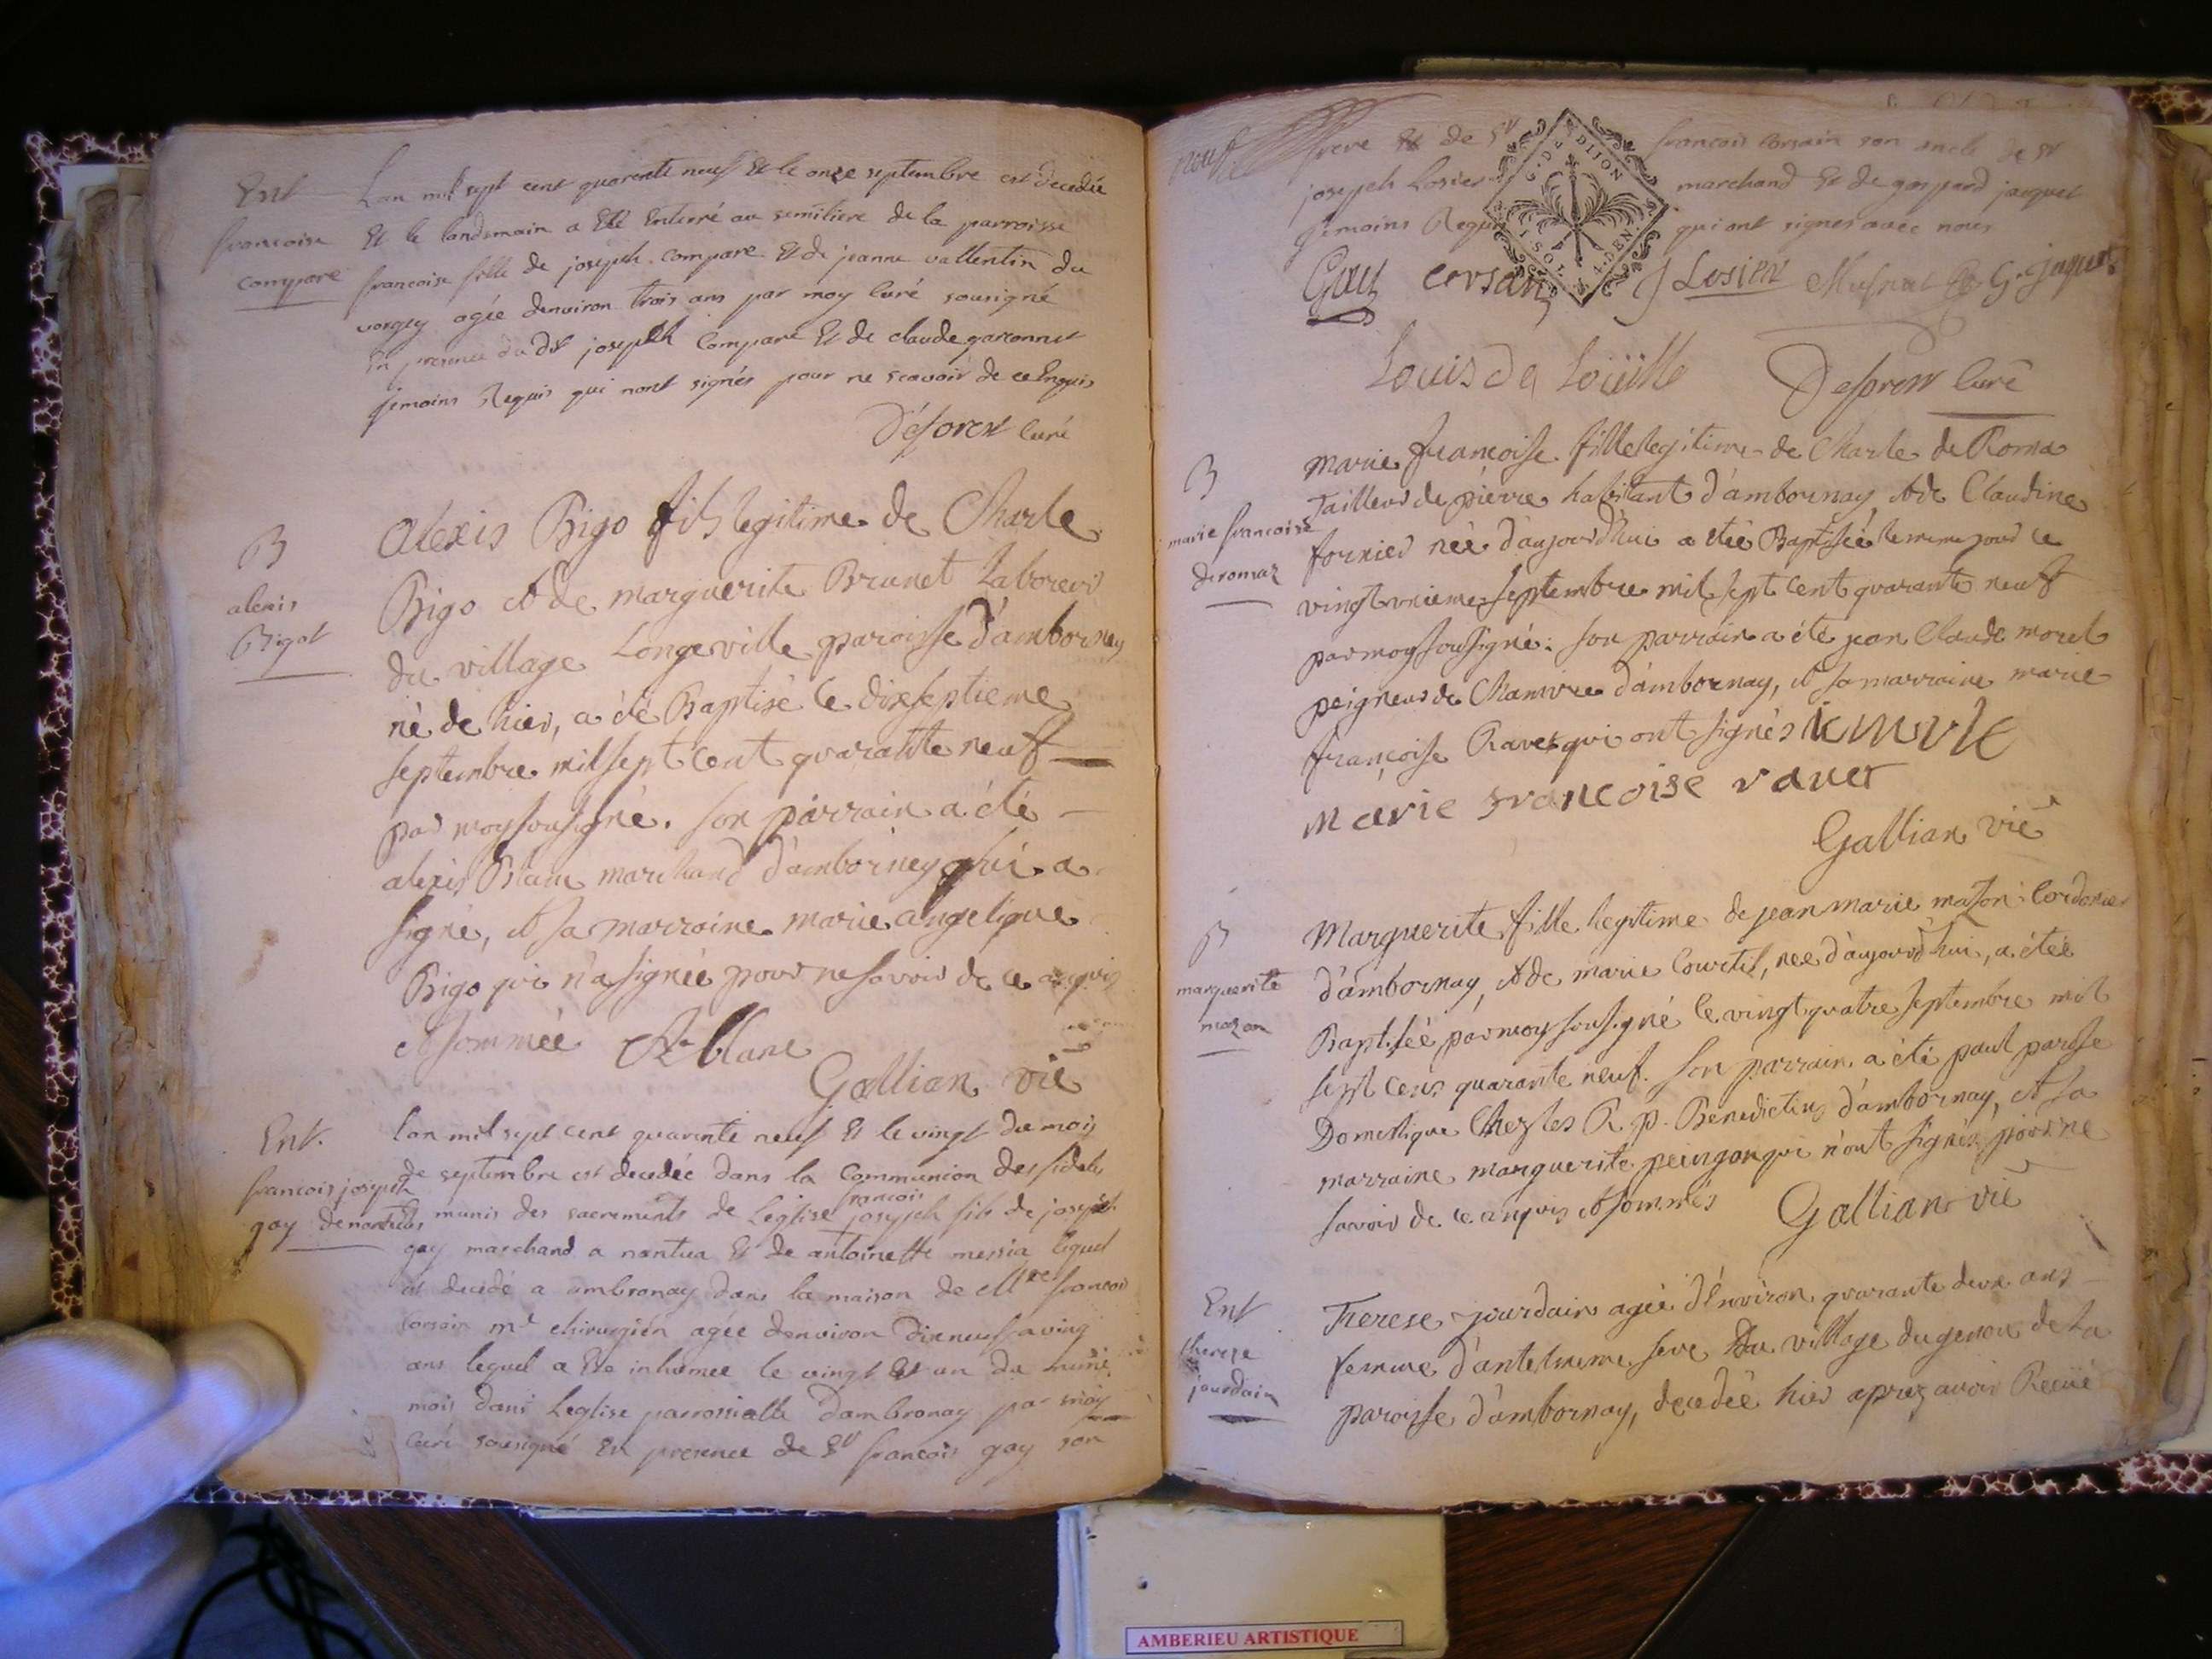 Ent
francoise
compare
Lan mil sept cent quarente neuf Et le onze septembre est decedée
Et le landemain a Eté Enterré au semitiere de la parroisse
francoise fille de joseph compare Et de jeanne vallentin du
vorgey agée denviron trois ans par moy Curé sousigné
En presence du dt joseph Compare Et de claude garconnet
temoins Requis qui nont signés pour ne scavoir de ce Enquis
Curé
B
alexis
Bigot
Alexis Bigo fils legitime de Charle
Bigo et de marguerite Brunet Laboreur
du village Longeville paroisse d'ambornay
né de hier, a été Baptisé le dixseptieme
septembre mil sept cent quarante neuf
par moy sousigné. son parrain a été
alexis Blanc marchand d'amborney qui a
signé, et sa marraine marie angelique
Bigo qui n'a signée pour ne savoir de ce enquis
et sommée A. Blanc
Gallian vic
Ent.
francois joseph
gay de nantua
Lan mil sept cent quarente neuf Et le vingt du mois
de septembre est decedée dans la Communion des fideles
munis des sacrements de Leglise francois joseph fils de joseph
gay marchand a nantua Et de antoinette messia lequel
est decedé a ambronay dans la maison de francois
corsain mt chirurgien agée denviron dixneuf a ving
ans lequel a Ete inhumee le vingt Et un du meme
mois dans Leglise parrossialle dambronay par moy
Curé sousigné En presence de Sr francois gay son
neuf
frere Et de Sr francois Corsain son oncle de Sr
joseph Losier marchand Et de gaspard jacquet
temoins Requis qui ont signes avec nous
G. DE DIJON
1 SOL. 4 DEN.
Gay corsain J Losier G. jaquet
Louis de
Curé
B
marie francoise
deromaz
Marie francoise fille legitime de Charle de Roma
Tailleur de pierre habitant d'ambornay et de Claudine
fornier née d'aujourd'hui a etée Baptisée le meme jour le
vingt unieme septembre mil sept cent quarante neuf
par moy sousigné: son parrain a été jean Claude morel
peigneur de Chanvre d'ambornay, et sa marraine marie
françoise Ravet qui ont signés
marie francoise ravet
Gallian vic
B
marguerite
mazon
Marguerite fille legitime de jean marie mazon Cordonier
d'ambornay, et de marie Courtil, née d'aujourd'hui, a étée
Baptisée par moy sousigné le vingt quatre septembre mil
sept cens quarante neuf. son parrain a été paul
Domestique Chez les R. p. Benedictins d'ambornay, et sa
marraine marguerite peingon qui n'ont signés pour ne
savoir de ce enquis et sommés Gallian vic
Ent
therese
jourdain
Therese jourdain agée d'Environ quarante deux ans
femme d'antelmeme seve du village du genou de La
paroisse d'ambornay, decedée hier apres avoir Recüe
AMBERIEU ARTISTIQUE